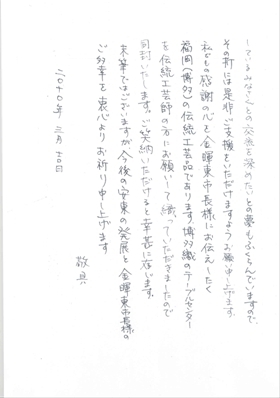 しているみなさんとの交流を深めたいとの夢もふくらんでいますので、
その折には是非ご支援をいただけますようお願い申し上げます。
私どもの感謝の心を金暉東市長様にお伝えしたく
福岡(博多)の伝統工芸品であります博多織のテーブルセンター
を伝統工芸師の方にお願いして織っていただきましたので
同封いたします。ご笑納いただけると幸甚に存じます。
末筆ではございますが今後の安東の発展と金暉東市長様の
ご多幸を衷心よりお祈り申し上げます
敬具
二〇一〇年 三月 二〇日